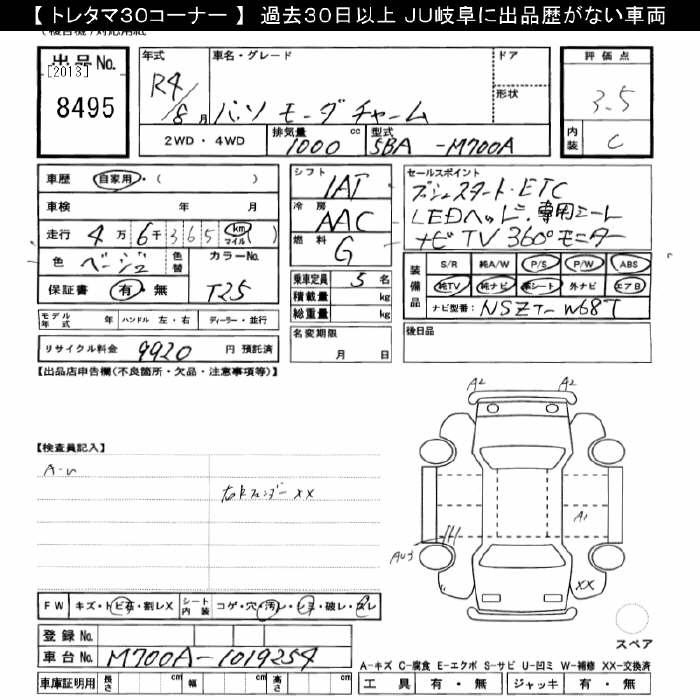 【 トレタマ30コーナー 】 過去30日以上 JU岐阜に出品歴がない車両
出品No. [2013] 8495
年式 R4/8月
車名・グレード パッソ モーダ チャーム
ドア
形状
評価点 3.5
内装 C
2WD・4WD
排気量 1000 cc
型式 5BA-M700A
車歴 自家用・( )
車検 年 月
走行 4万6千365 km マイル ( )
色 ベージュ 色替
カラーNo. T25
保証書 有・無
モデル年式 年 ハンドル 左・右 ディーラー・並行
リサイクル料金 9920 円 預託済
シフト IAT
冷房 AAC
燃料 G
乗車定員 5 名
積載量 kg
総重量 kg
名変期限 月 日
セールスポイント
プッシュスタート・ETC
LEDヘッド・専用シート
ナビTV 360°モニター
装備品 S/R 純A/W P/S P/W ABS
純TV 純ナビ 革シート 外ナビ エアB
ナビ型番: NSZT-W68T
後日品
【出品店申告欄(不良箇所・欠品・注意事項等)】
【検査員記入】
A-U
右Rフェンダー XX
A2 A2
A1
AU3
XX
FW キズ・トビ石・割レX
シート内装 コゲ・穴・汚レ・シミ・破レ・スレ
スペア
登録No.
車台No. M700A-1019254
車庫証明用 長さ cm 幅 cm 高さ cm
A-キズ C-腐食 E-エクボ S-サビ U-凹ミ W-補修 XX-交換済
工具 有・無 ジャッキ 有・無